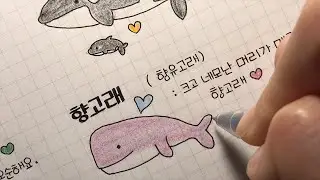 (향유고래)
: 크고 네모난 머리가
향고래
향고래
순해요.